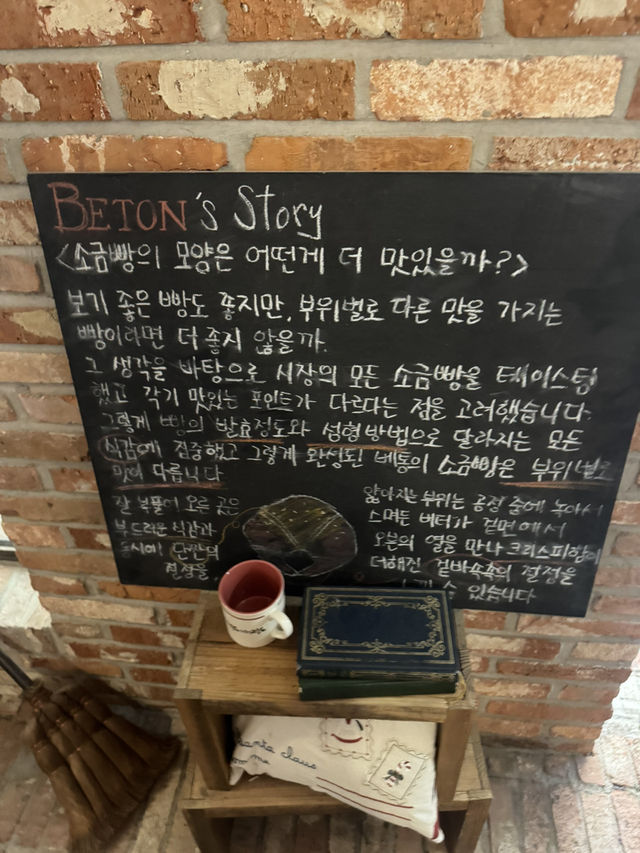 BETON's Story
<소금빵의 모양은 어떤게 더 맛있을까?>
보기 좋은 빵도 좋지만, 부위별로 다른 맛을 가지는
빵이라면 더 좋지 않을까.
그 생각을 바탕으로 시장의 모든 소금빵을 테이스팅
했고 각기 맛있는 포인트가 다르다는 점을 고려했습니다
그렇게 빵의 발효정도와 성형방법으로 달라지는 모든
식감에 집중했고 그렇게 완성된 베통의 소금빵은 부위별로
맛이 다릅니다
잘 부풀어 오른 곳은
부드러운 식감과
동시에 단짠의
절정을,
얇아지는 부위는 공정 중에 녹아서
스며든 버터가 겉면에서
오븐의 열을 만나 크리스피함이
더해진 겉바속촉의 절정을
수 있습니다
santa claus